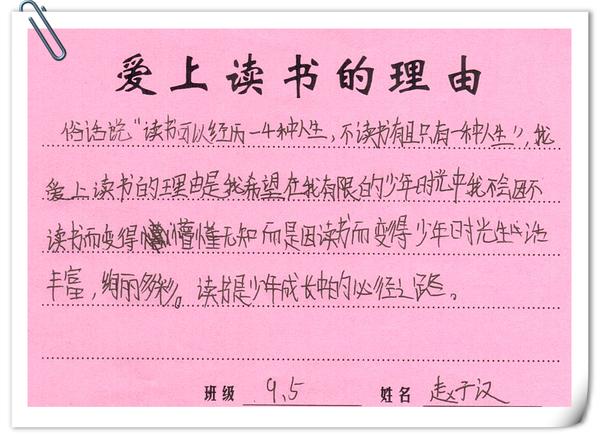 爱上读书的理由
俗话说"读书可以经历一千种人生，不读书有且只有一种人生"，我
爱上读书的理由是我希望在我有限的少年时光中我不会因不
读书而变得懵懂无知而是因读书而变得少年时光生活
丰富，绚丽多彩。读书是少年成长中的必经之路。
班级 9.5 姓名 赵于汉